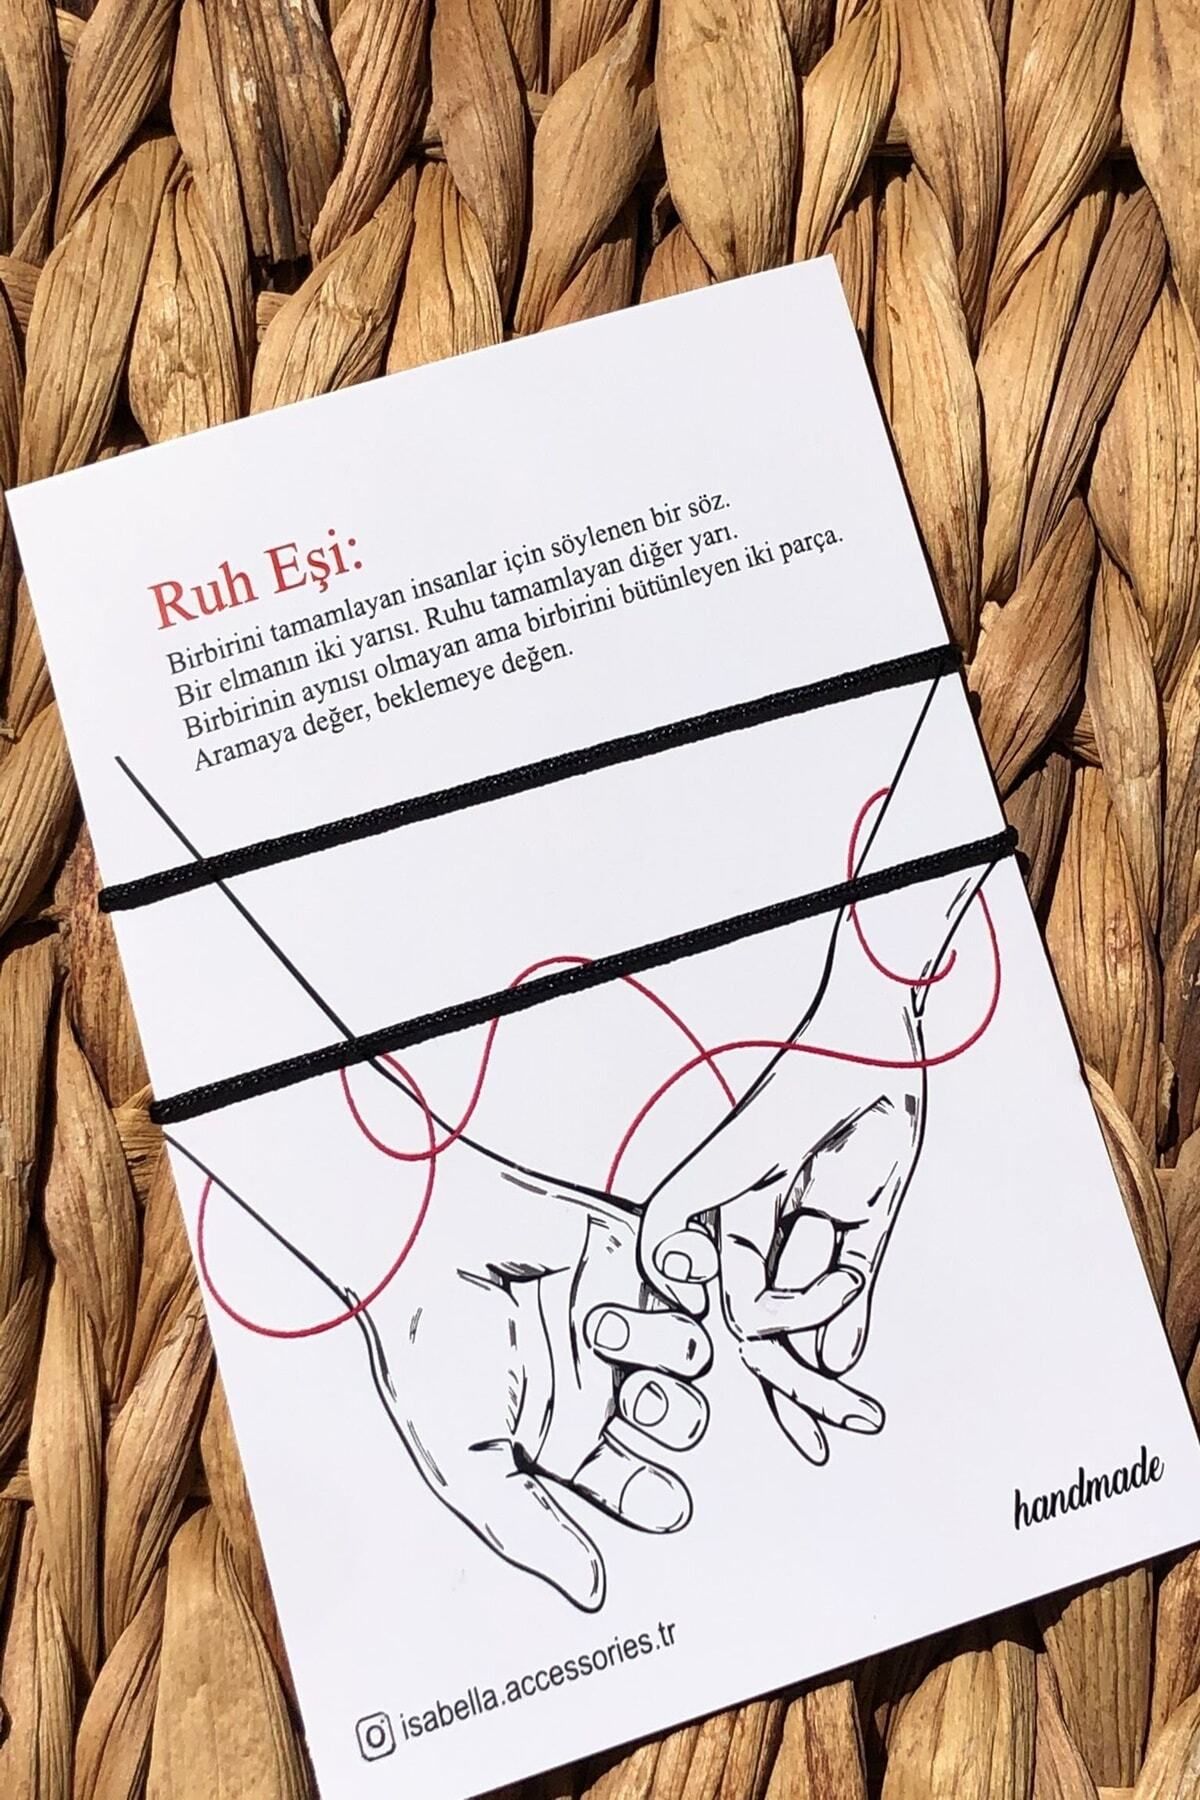 Ruh Eşi:
Birbirini tamamlayan insanlar için söylenen bir söz.
Bir elmanın iki yarısı. Ruhu tamamlayan diğer yarı.
Birbirinin aynısı olmayan ama birbirini bütünleyen iki parça.
Aramaya değer, beklemeye değen.
handmade
isabella.accessories.tr